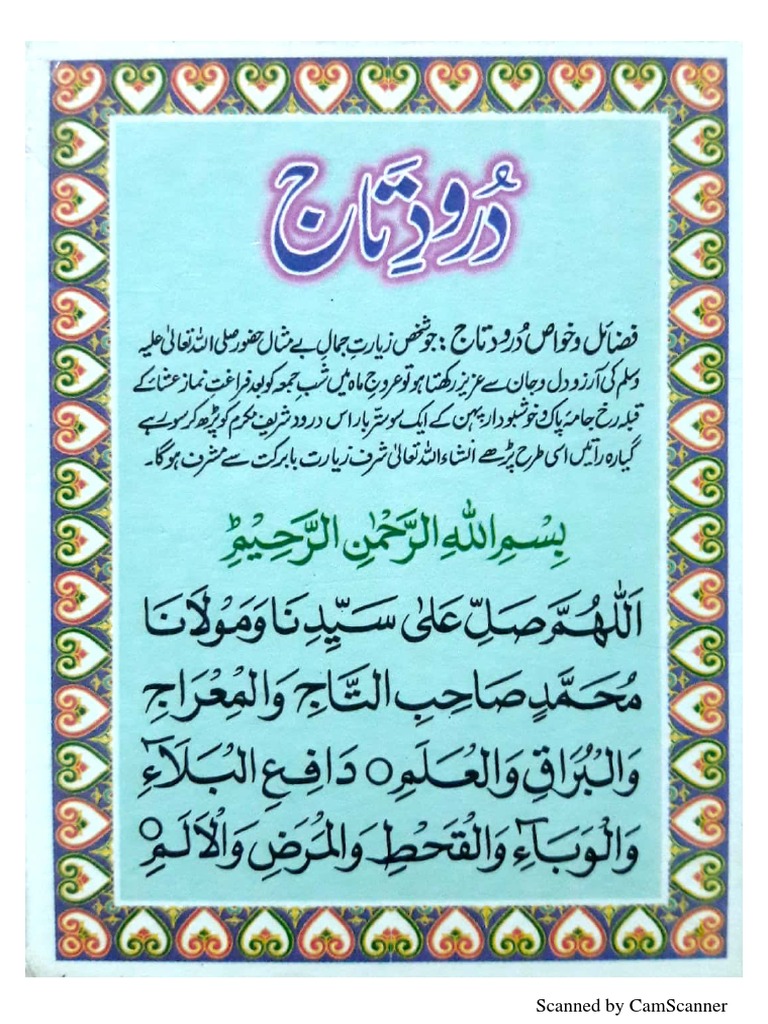 دُرودِ تَاج
فضائل و خواص دُرود تاج : جو شخص زیارتِ جمالِ بے مثال حضور صلی اللہ تعالیٰ علیہ
وسلم کی آرزو دل و جان سے عزیز رکھتا ہو تو عروجِ ماہ میں شبِ جمعہ کو بعد فراغتِ نماز عشاء کے
قبلہ رخ جامۂ پاک و خوشبودار پہن کے ایک سو ستر بار اس درود شریفِ مکرم کو پڑھ کر سو رہے
گیارہ راتیں اسی طرح پڑھے انشاء اللہ تعالیٰ شرفِ زیارت بابرکت سے مشرف ہوگا۔
بِسْمِ اللهِ الرَّحْمٰنِ الرَّحِيْمِؕ
اَللّٰهُمَّ صَلِّ عَلٰى سَيِّدِنَا وَمَوْلَانَا
مُحَمَّدٍ صَاحِبِ التَّاجِ وَالْمِعْرَاجِ
وَالْبُرَاقِ وَالْعَلَمِ ○ دَافِعِ الْبَلَآءِ
وَالْوَبَآءِ وَالْقَحْطِ وَالْمَرَضِ وَالْاَلَمِ ○
Scanned by CamScanner